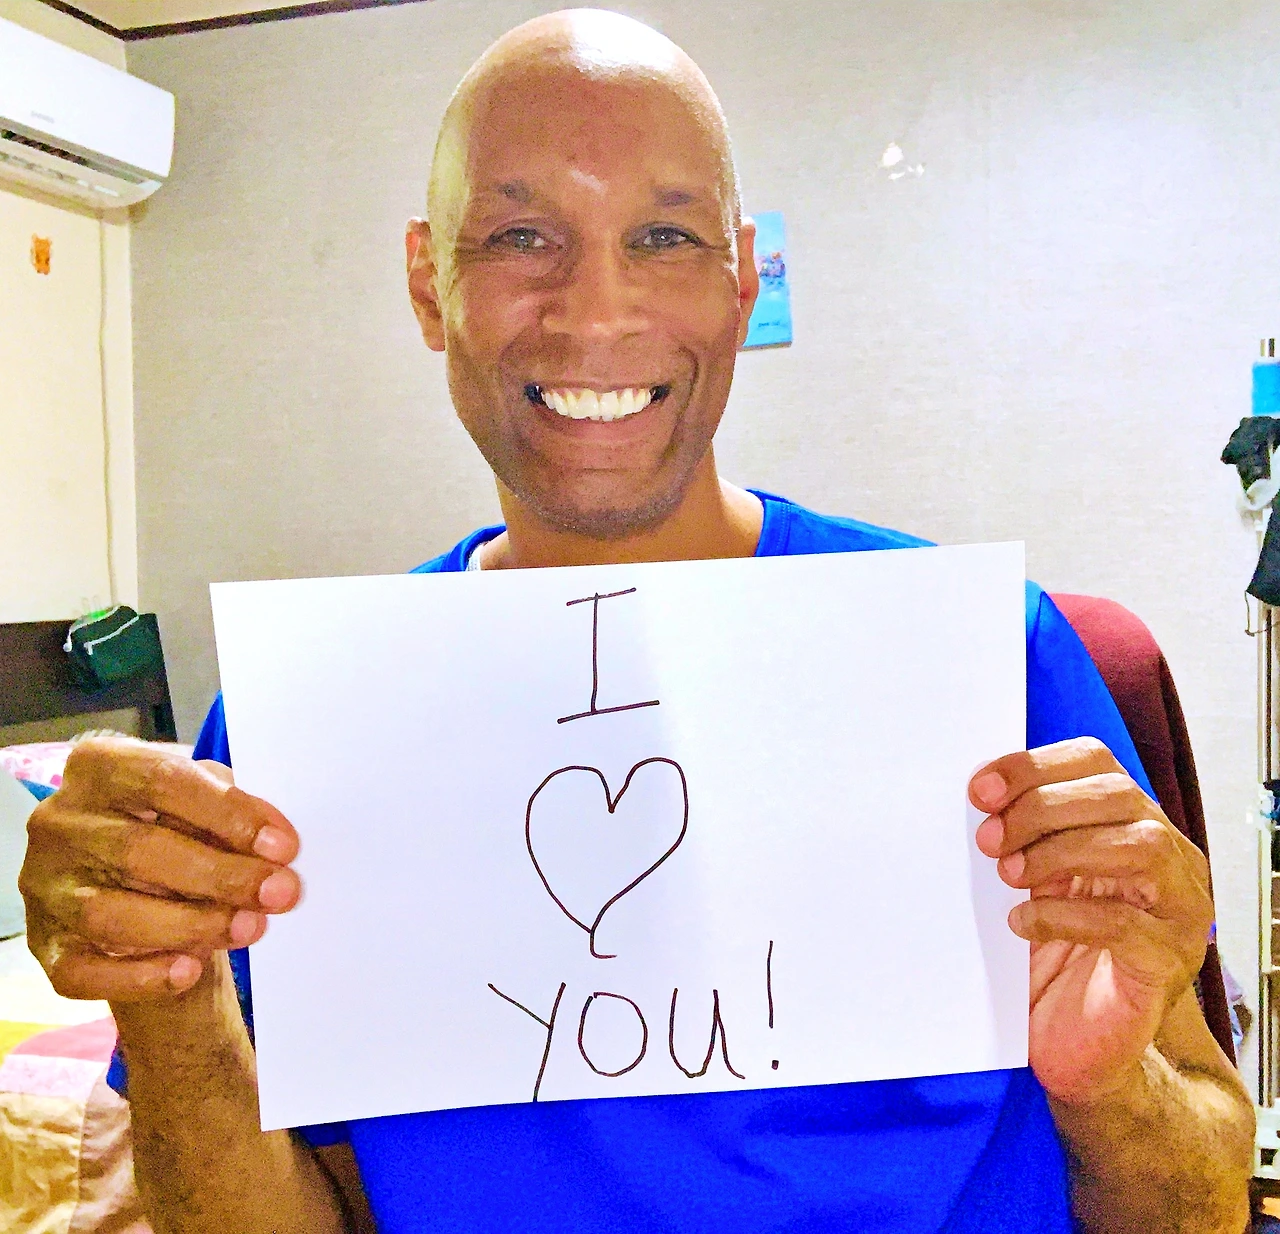 I
♡
you!